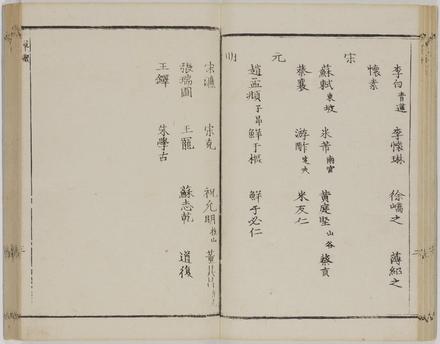 李白青蓮 李懷琳 徐嶠之 薄紹之
懷素
宋
蘇軾東坡 米芾南宮 黄庭堅山谷 蔡襄
蔡襄 游酢定夫 米友仁
元
趙孟頫子昂 鮮于樞 鮮于必仁
明
宋濂 宋克 祝允明枝山 董其昌
張瑞圖 王寵 蘇志乾 道復
王鐸 朱學古